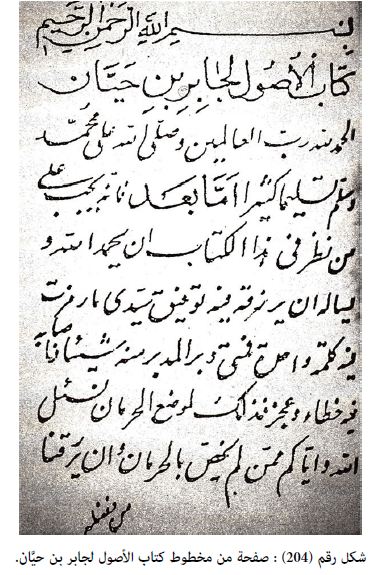 بسم الله الرحمن الرحيم
كتاب الأصول لجابر بن حيّان
الحمد لله رب العالمين وصلى الله على محمد
وسلم تسليما كثيرا اما بعد فانه يجب على
من نظر فى هذا الكتاب ان يحمد الله و
يساله ان يرزقه فيه توفيق سيدى
فيه كلمة واحدة فمتى دبر المدبر منه شيئا
فيه خطاء وعجز فذلك لموضع الحرمان نسئل
الله واياكم ممن لم يخص بالحرمان وان يرزقنا
من فضله
شكل رقم (204) : صفحة من مخطوط كتاب الأصول لجابر بن حيَّان.